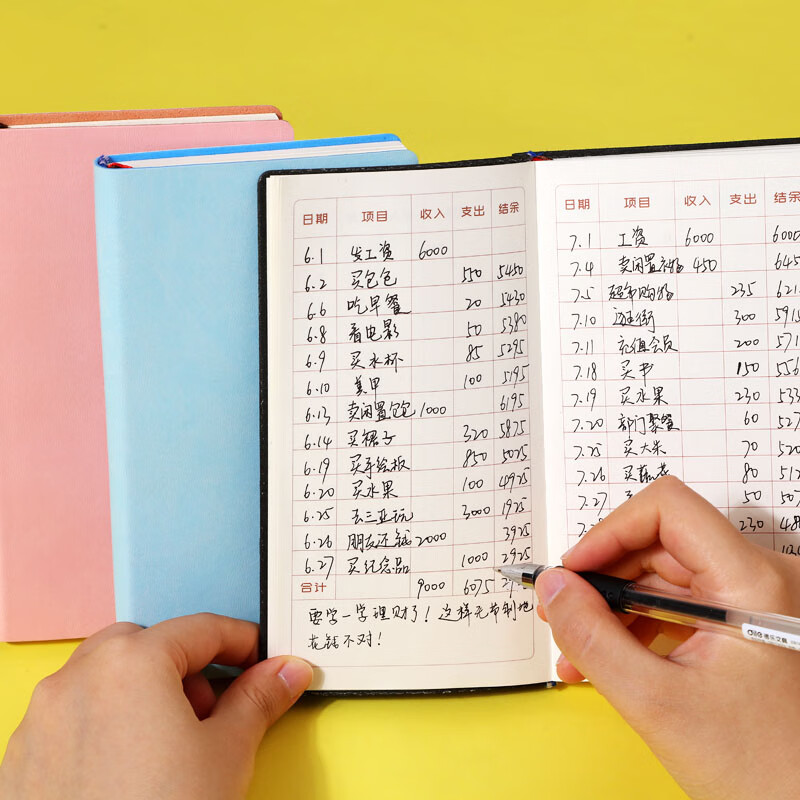 日期 项目 收入 支出 结余
6.1 发工资 6000
6.2 买包包 550 5450
6.6 吃早餐 20 5430
6.8 看电影 50 5380
6.9 买水杯 85 5295
6.10 美甲 100 5195
6.13 卖闲置包包 1000 6195
6.14 买裙子 320 5875
6.19 买手绘板 850 5025
6.20 买水果 100 4925
6.25 去三亚玩 3000 1925
6.26 朋友还钱 2000 3925
6.27 买纪念品 1000 2925
合计 9000 6075
要学一学理财了!这样无节制地
花钱不对!
日期 项目 收入 支出 结余
7.1 工资 6000 6000
7.4 卖闲置衣物 450 645
7.5 超市购物 235 621
7.10 逛街 300 5915
7.11 充值会员 200 571
7.18 买书 150 556
7.19 买水果 230 533
7.20 部门聚餐 60 527
7.25 买大米 70 520
7.26 买 80 512
7.27 50 507
230 48